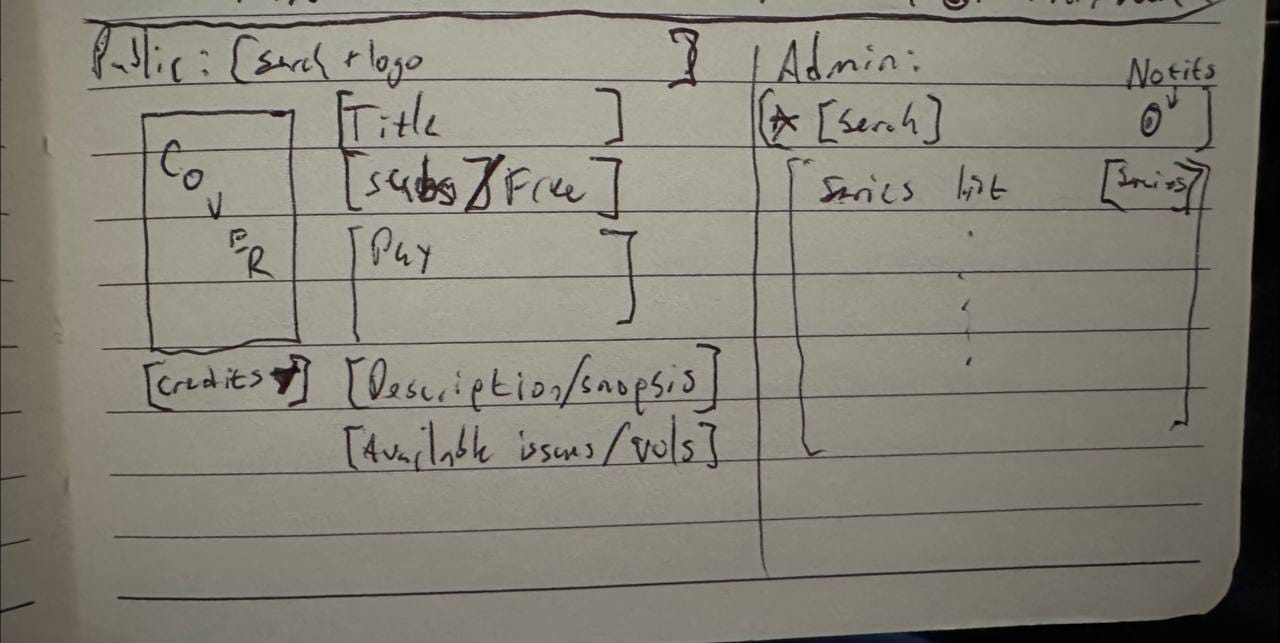 Public: [serch + logo ]
[Title ]
COVER
[subs / Free ]
[Pay ]
[credits ▼] [Description/snopsis]
[Available issues/vols]
Admin:
Notifs
[☆ [Serch] ]
Series list